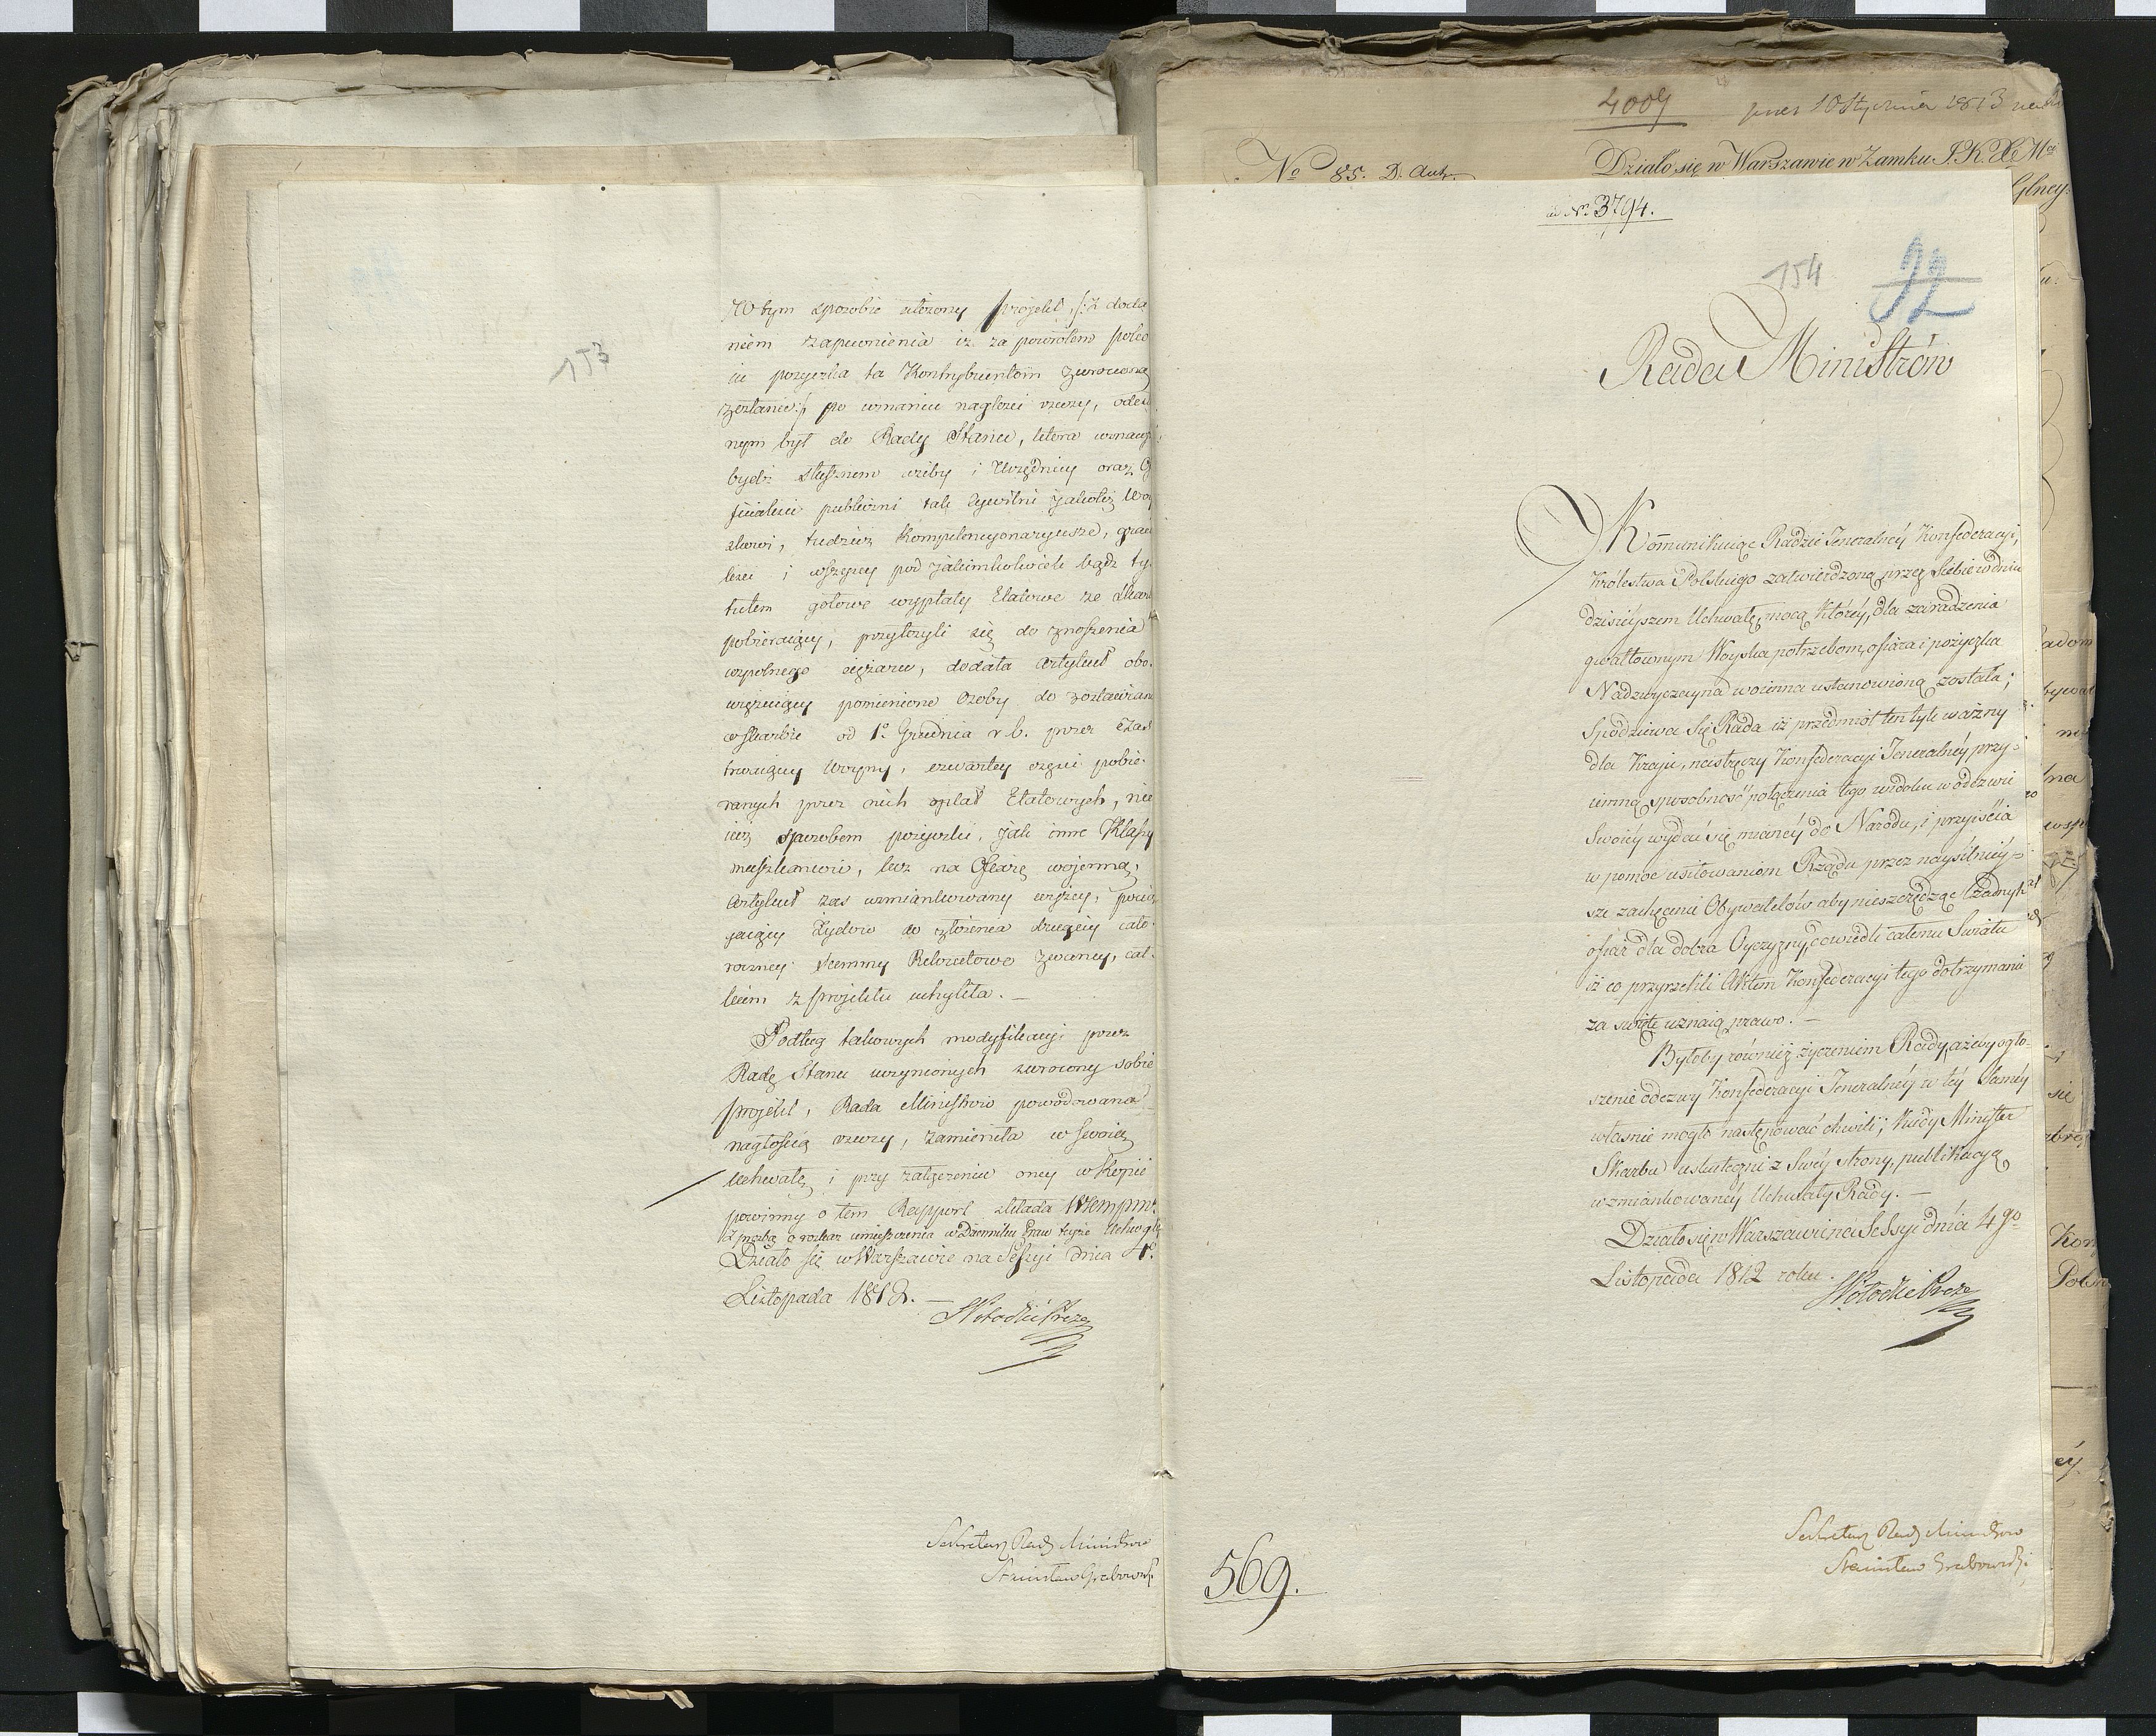 153
W tym sposobie ułożony projekt, /: z doda
niem zapewnienia iż za powrotem poko
iu pożyczka ta Kontrybuentom zwrócona
zostanie :/ po uznaniu nagłości rzeczy, odesła
nym był do Rady Stanu, która uznawszy
bydź słusznem ażeby i Urzędnicy oraz Of
ficialiści publiczni tak Cywilni jakoteż Woy
skowi, tudzież Kompetencyonaryusze, grac
liści i wszyscy pod jakimkolwiek bądź ty
tułem gotowe wypłaty Etatowe ze Skarbu
pobieraiący, przyłożyli się do znoszenia
wspólnego ciężaru, dodała Artykuł obo-
wiązuiący pomienione Osoby do zostawienia
w Skarbie od 1º Grudnia r. b. przez czas
trwaiącey Woyny, czwartey części pobie-
ranych przez nich opłat Etatowych, nie
iuż sposobem pożyczki, jak inne Klassy
mieszkańców, lecz na Ofiarę wojenną,
Artykuł zaś wzmiankowany wyżey, powo
łuiący Żydów do złożenia drugiey cało-
roczney Summy Rekrutowe zwaney, cał-
kiem z projektu uchyliła. —
Podług takowych modyfikacyi przez
Radę Stanu uczynionych zwrócony sobie
projekt, Rada Ministrów powodowana
nagłością rzeczy, zamieniła w swoię
Uchwałę i przy załączeniu oney w Kopii
powinny o tem Rapport składa
z prośbą o rozkaz umieszczenia w Dzienniku Praw teyże Uchwały
Działo się w Warszawie na Sessyi dnia 4º
Listopada 1812. —
SPotocki Prezes
Sekretarz Rady Ministrów
Stanisław Grabowski
4009
przez 10 Stycznia 1813
No 85. D. Aut.
Działo się w Warszawie w Zamku J. K. X. Mci
Glney
ad No 3794.
154
92
Rada Ministrów
Kommunikuiąc Radzie Jeneralnéy Konfederacyi,
Królestwa Polskiego zatwierdzoną przez siebie w dniu
dzisiéyszem Uchwałę, mocą któréy, dla zaradzenia
gwałtownym Woyska potrzebom, ofiara i pożyczka
Nadzwyczayna woienna ustanowioną została;
Spodziewa się Rada iż przedmiot ten tyle ważny
dla Kraju, nastręczy Konfederacyi Jeneralnéy przy-
iemną sposobność połączenia tego widoku w odezwie
Swoiéy wydać się maiącéy do Narodu, i przyiścia
w pomoc usiłowaniom Rządu przez naysilniéy-
sze zachęcenie Obywatelów aby nieszczędząc żadnych
ofiar dla dobra Oyczyzny, dowiedli całemu Światu
iż co przyrzekli Aktem Konfederacyi tego dotrzymanie
za święte uznaią prawo. —
Byłoby również życzeniem Rady, ażeby ogło-
szenie odezwy Konfederacyi Jeneralnéy w téy saméy
właśnie mogło następować chwili; Kiedy Minister
Skarbu uskuteczni z Swéy strony, publikacyą
wzmiankowanéy Uchwały Rady. —
Działo się w Warszawie na Sessyi dnia 4go
Listopada 1812 roku.
SPotocki Prezes
Sekretarz Rady Ministrów
Stanisław Grabowski
569.